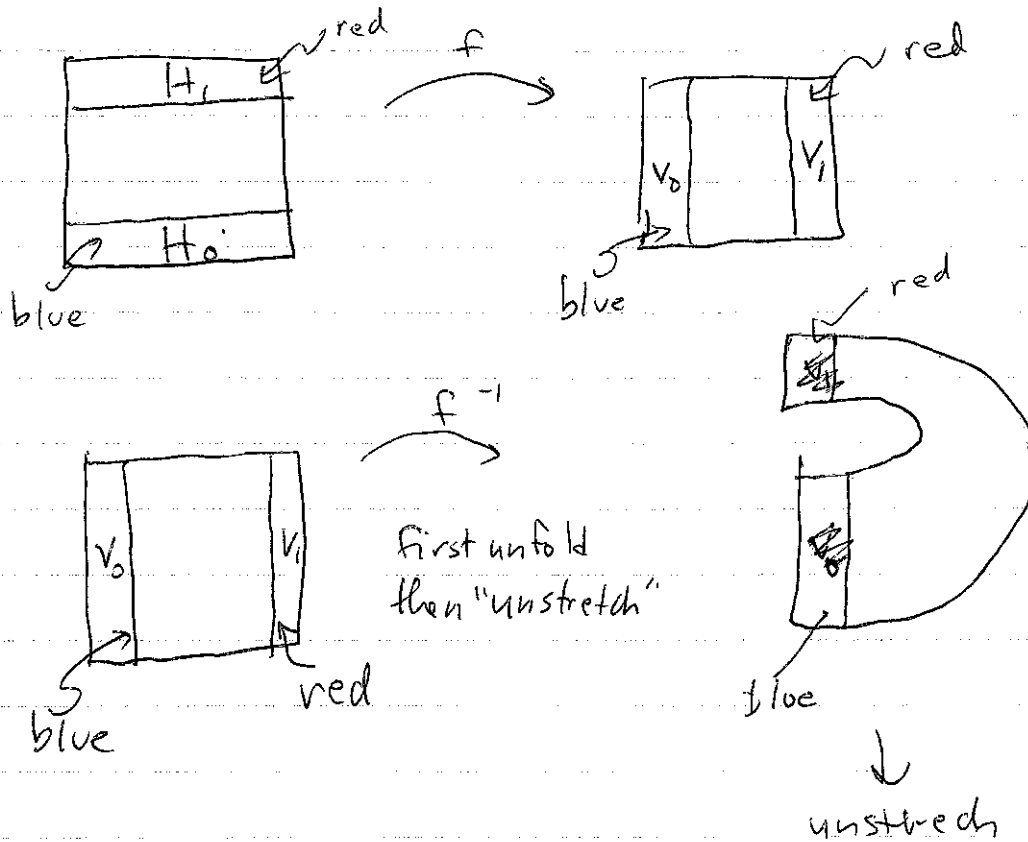 red
H₁
f
red
V₀
V₁
H₀
blue
blue
red
f⁻¹
V₀
V₁
first unfold
then "unstretch"
blue
red
blue
unstrech